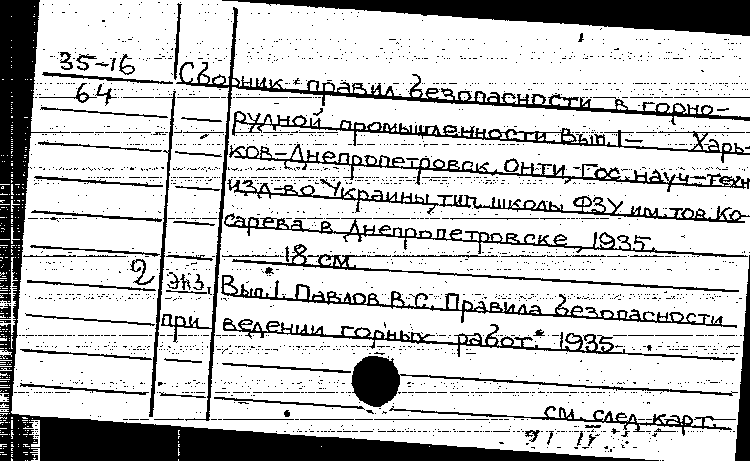 35-16
64
Сборник правил безопасности в горно-
рудной промышленности. Вып. 1 — Харь-
ков-Днепропетровск, ОНТИ, Гос. науч-техн
изд-во Украины, тип. школы ФЗУ им. тов. Ко-
сарева в Днепропетровске, 1935.
18 см.
2 экз. Вып. 1. Павлов В.С. Правила безопасности
при ведении горных работ. 1935.
см. след. карт.